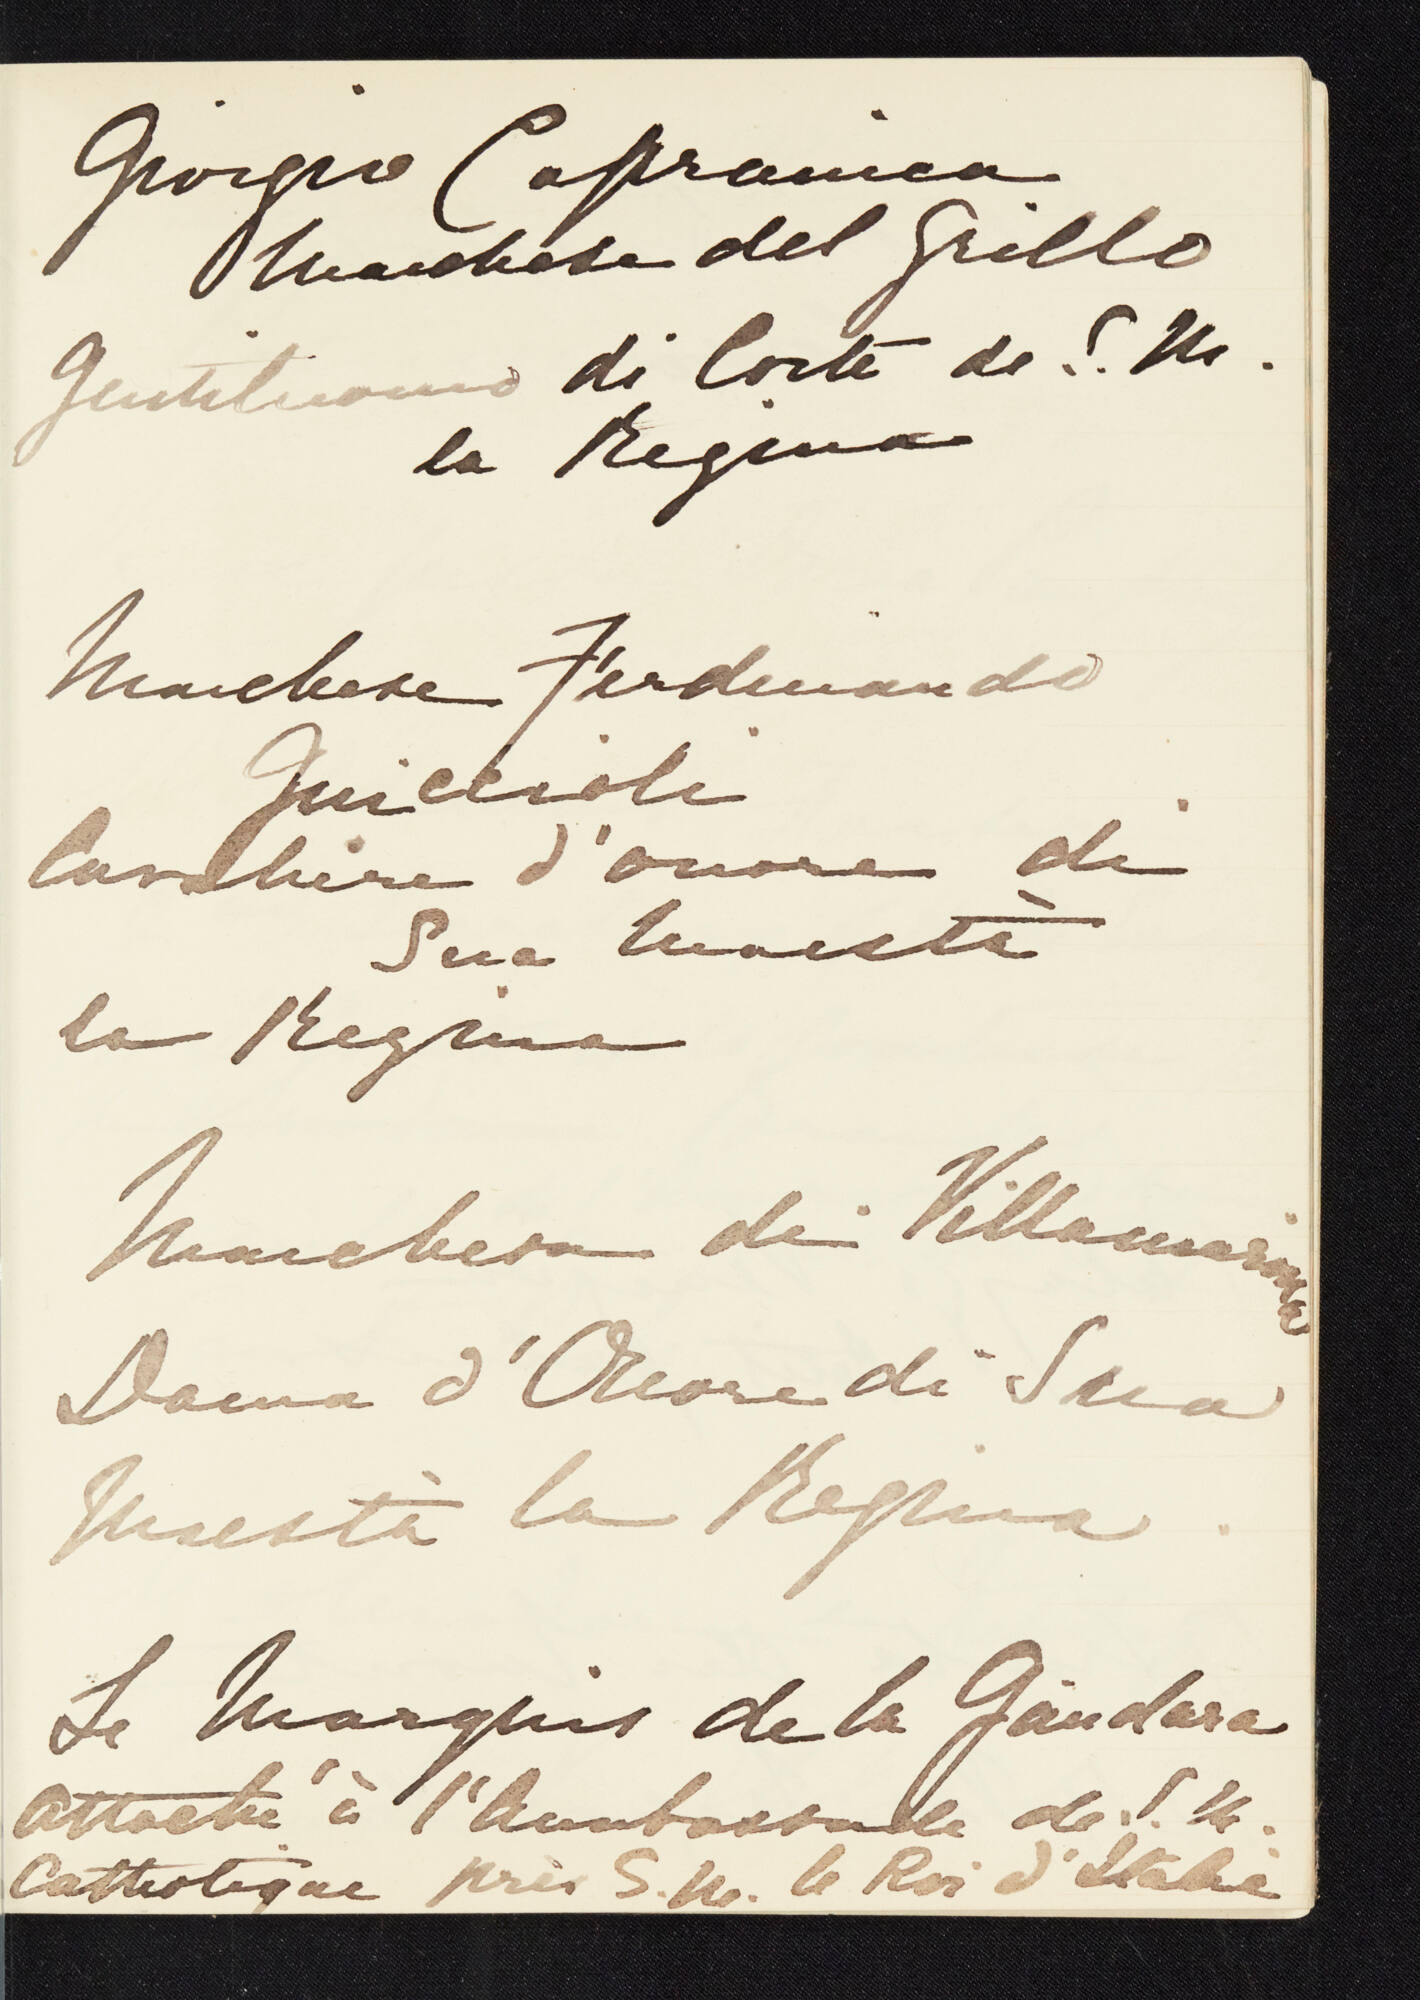 Giorgio Capranica
Marchese del Grillo
Gentiluomo di Corte de S. M.
la Regina
Marchese Ferdinando
Guiccioli
Cavaliere d'onore di
Sua Maestà
la Regina
Marchesa di Villamarina
Dama d'Onore di Sua
Maestà la Regina.
Le Marquis de la Gándara
attaché à l'Ambassade de S. M.
Catholique près S. M. le Roi d'Italie